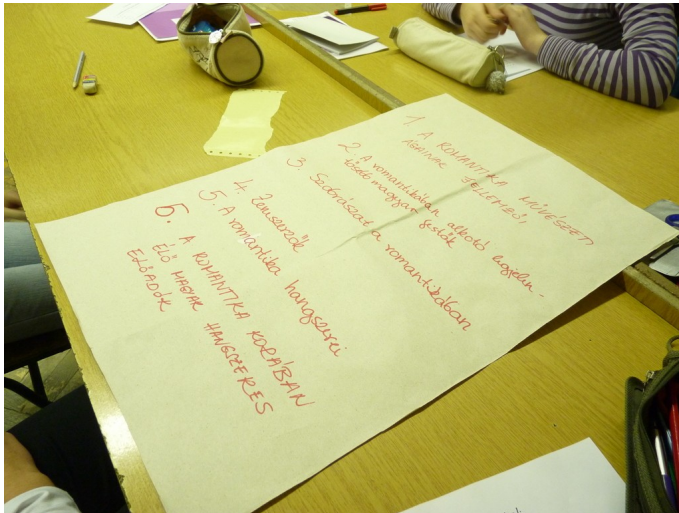 1 A ROMANTIKA MŰVÉSZET
ÁGAINAK JELLEMZŐI,
2 A romantikában alkotó legjelen-
tősebb magyar festők
3. Szobrászat a romantikában
4. Zeneszerzők
5. A romantika hangszerei
6. A ROMANTIKA KORÁBAN
ÉLŐ MAGYAR HANGSZERES
ELŐADÓK